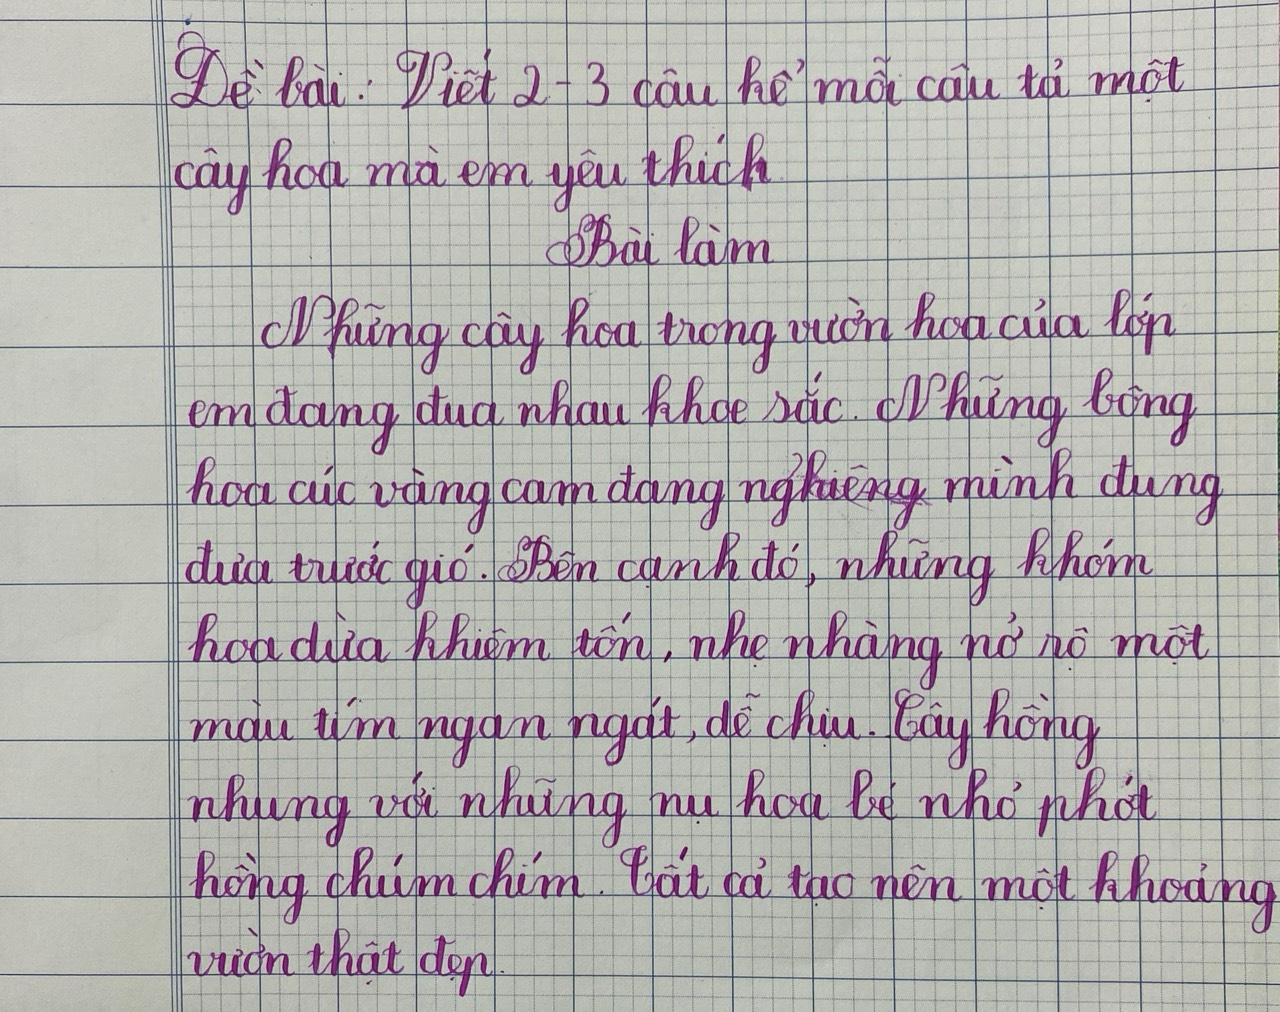 Đề bài: Viết 2-3 câu kể mỗi câu tả một
cây hoa mà em yêu thích
Bài làm
Những cây hoa trong vườn hoa của lớp
em đang đua nhau khoe sắc. Những bông
hoa cúc vàng cam đang nghiêng mình đung
đưa trước gió. Bên cạnh đó, những khóm
hoa dừa khiêm tốn, nhẹ nhàng nở rộ một
màu tím ngan ngát, dễ chịu. Cây hồng
nhung với những nụ hoa bé nhỏ phớt
hồng chúm chím. Tất cả tạo nên một khoảng
vườn thật đẹp.